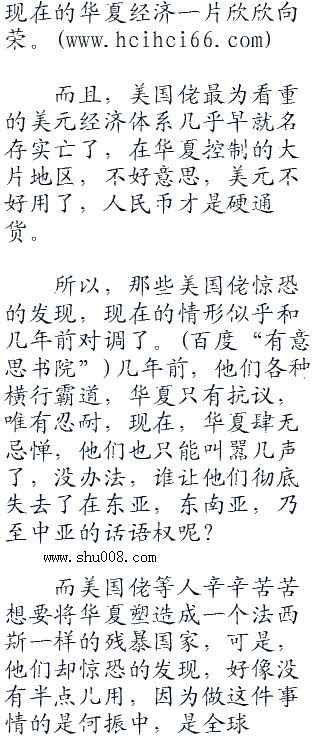 现在的华夏经济一片欣欣向
荣。(www.hcihci66.com)
而且，美国佬最为看重
的美元经济体系几乎早就名
存实亡了，在华夏控制的大
片地区，不好意思，美元不
好用了，人民币才是硬通
货。
所以，那些美国佬惊恐
的发现，现在的情形似乎和
几年前对调了。(百度“有意
思书院”)几年前，他们各种
横行霸道，华夏只有抗议，
唯有忍耐，现在，华夏肆无
忌惮，他们也只能叫嚣几声
了，没办法，谁让他们彻底
失去了在东亚，东南亚，乃
至中亚的话语权呢？
www.shu008.com
而美国佬等人辛辛苦苦
想要将华夏塑造成一个法西
斯一样的残暴国家，可是，
他们却惊恐的发现，好像没
有半点儿用，因为做这件事
情的是何振中，是全球